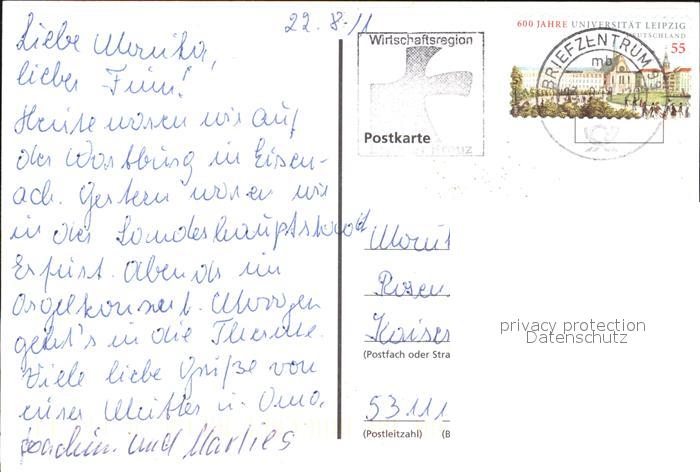 22.8.11
Liebe Monika,
lieber Timm!
Heute waren wir auf
der Wartburg in Eisen-
ach. Gestern waren wir
in der Landeshauptstadt
Erfurt. Abends im
Orgelkonzert. Morgen
geht's in die Therme.
Viele liebe Grüße von
eurer Mutter u. Oma.
Joachim und Marlies
Wirtschaftsregion
Postkarte
600 JAHRE UNIVERSITÄT LEIPZIG
DEUTSCHLAND
55
BRIEFZENTRUM
mb
Rosen
Kaiser
(Postfach oder Stra
53111
(Postleitzahl) (B
privacy protection
Datenschutz